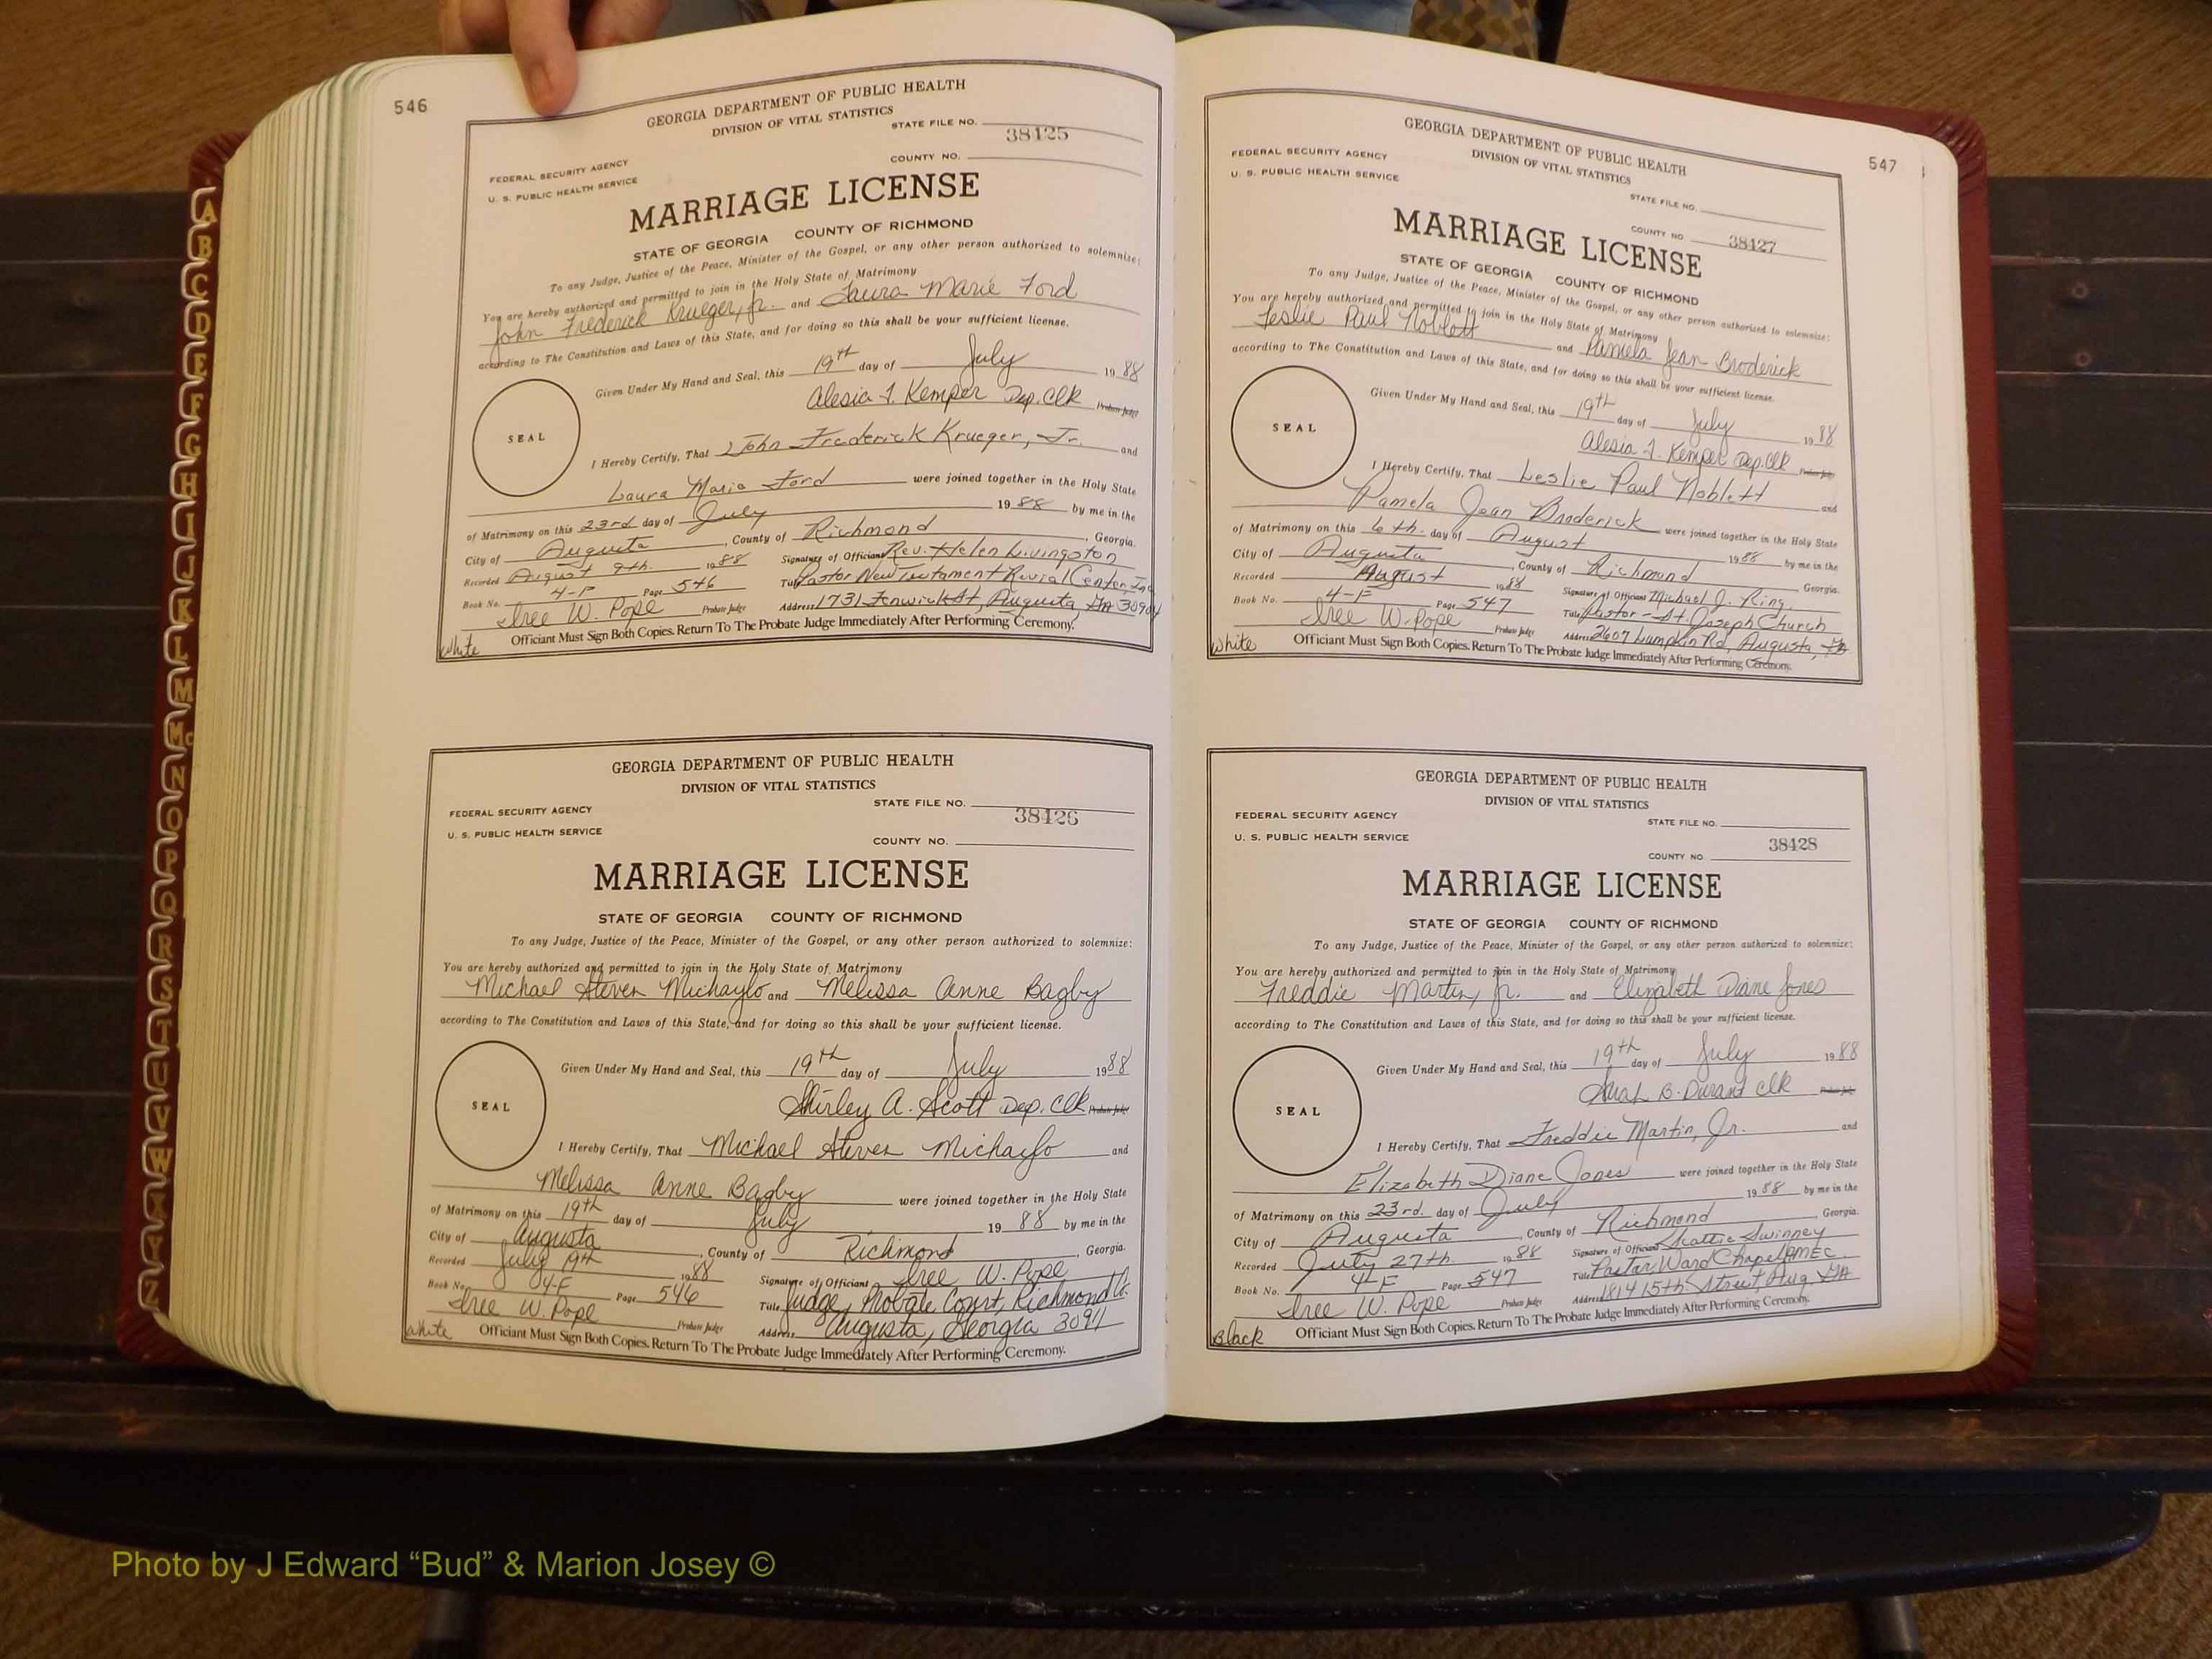 546
GEORGIA DEPARTMENT OF PUBLIC HEALTH
DIVISION OF VITAL STATISTICS
STATE FILE NO. 38425
COUNTY NO.
FEDERAL SECURITY AGENCY
U. S. PUBLIC HEALTH SERVICE
MARRIAGE LICENSE
STATE OF GEORGIA COUNTY OF RICHMOND
To any Judge, Justice of the Peace, Minister of the Gospel, or any other person authorized to solemnize:
You are hereby authorized and permitted to join in the Holy State of Matrimony
John Frederick Krueger, Jr. and Laura Marie Ford
according to The Constitution and Laws of this State, and for doing so this shall be your sufficient license.
Given Under My Hand and Seal, this 19th day of July 1988
Alesia F. Kemper Dep. Clk Probate Judge
SEAL
I Hereby Certify, That John Frederick Krueger, Jr. and
Laura Marie Ford were joined together in the Holy State
of Matrimony on this 23rd day of July 1988 by me in the
City of Augusta, County of Richmond, Georgia.
Recorded August 9th. 1988 Signature of Officiant Rev. Helen Livingston
Book No. 4-F Page 546 Title Pastor New Testament Revial Center, Inc
Iree W. Pope Probate Judge Address 1731 Fenwick St, Augusta, GA 30904
White Officiant Must Sign Both Copies. Return To The Probate Judge Immediately After Performing Ceremony.
GEORGIA DEPARTMENT OF PUBLIC HEALTH
DIVISION OF VITAL STATISTICS
STATE FILE NO. 38426
FEDERAL SECURITY AGENCY
U. S. PUBLIC HEALTH SERVICE
COUNTY NO.
MARRIAGE LICENSE
STATE OF GEORGIA COUNTY OF RICHMOND
To any Judge, Justice of the Peace, Minister of the Gospel, or any other person authorized to solemnize:
You are hereby authorized and permitted to join in the Holy State of Matrimony
Michael Steven Michaylo and Melissa Anne Bagby
according to The Constitution and Laws of this State, and for doing so this shall be your sufficient license.
Given Under My Hand and Seal, this 19th day of July 1988
Shirley A. Scott Dep. Clk Probate Judge
SEAL
I Hereby Certify, That Michael Steven Michaylo and
Melissa Anne Bagby were joined together in the Holy State
of Matrimony on this 19th day of July 1988 by me in the
City of Augusta, County of Richmond, Georgia.
Recorded July 19th 1988 Signature of Officiant Iree W. Pope
Book No. 4-F Page 546 Title Judge, Probate Court, Richmond Co.
Iree W. Pope Probate Judge Address Augusta, Georgia 30911
White Officiant Must Sign Both Copies. Return To The Probate Judge Immediately After Performing Ceremony.
547
GEORGIA DEPARTMENT OF PUBLIC HEALTH
DIVISION OF VITAL STATISTICS
FEDERAL SECURITY AGENCY
U. S. PUBLIC HEALTH SERVICE
STATE FILE NO.
COUNTY NO 38427
MARRIAGE LICENSE
STATE OF GEORGIA COUNTY OF RICHMOND
To any Judge, Justice of the Peace, Minister of the Gospel, or any other person authorized to solemnize:
You are hereby authorized and permitted to join in the Holy State of Matrimony
Leslie Paul Noblett and Pamela Jean Broderick
according to The Constitution and Laws of this State, and for doing so this shall be your sufficient license.
Given Under My Hand and Seal, this 19th day of July 1988
Alesia F. Kemper Dep. Clk Probate Judge
SEAL
I Hereby Certify, That Leslie Paul Noblett and
Pamela Jean Broderick were joined together in the Holy State
of Matrimony on this 6th. day of August 1988 by me in the
City of Augusta, County of Richmond Georgia.
Recorded August 1988 Signature of Officiant Michael J. King
Book No. 4-F Page 547 Title Pastor - St. Joseph Church
Iree W. Pope Probate Judge Address 2607 Lumpkin Rd, Augusta, Ga
White Officiant Must Sign Both Copies. Return To The Probate Judge Immediately After Performing Ceremony.
GEORGIA DEPARTMENT OF PUBLIC HEALTH
DIVISION OF VITAL STATISTICS
FEDERAL SECURITY AGENCY
STATE FILE NO.
U. S. PUBLIC HEALTH SERVICE
COUNTY NO. 38428
MARRIAGE LICENSE
STATE OF GEORGIA COUNTY OF RICHMOND
To any Judge, Justice of the Peace, Minister of the Gospel, or any other person authorized to solemnize:
You are hereby authorized and permitted to join in the Holy State of Matrimony
Freddie Martin, Jr. and Elizabeth Diane Jones
according to The Constitution and Laws of this State, and for doing so this shall be your sufficient license.
Given Under My Hand and Seal, this 19th day of July 1988
Sarah B. Durant Clk Probate Judge
SEAL
I Hereby Certify, That Freddie Martin, Jr. and
Elizabeth Diane Jones were joined together in the Holy State
of Matrimony on this 23rd. day of July 1988 by me in the
City of Augusta, County of Richmond, Georgia.
Recorded July 27th. 1988 Signature of Officiant Swinney
Book No. 4-F Page 547 Title Pastor Ward Chapel AMEC
Iree W. Pope Probate Judge Address 1814 15th. Street, Aug. GA
Black Officiant Must Sign Both Copies. Return To The Probate Judge Immediately After Performing Ceremony.
A
B
C
D
E
F
G
H
I
J
K
L
M
Mc
N
O
P
Q
R
S
T
U
V
W
X
Y
Z
Photo by J Edward “Bud” & Marion Josey ©